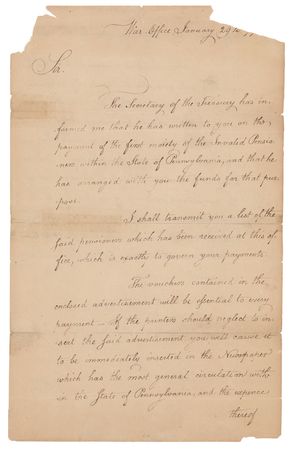 War Office January 29th
Sir.
The Secretary of the Treasury has in-
formed me that he has written to you on the
payment of the first moiety of the Invalid Pensio-
ners within the State of Pennsylvania, and that he
has arranged with you the funds for that pur-
pose.
I shall transmit you a list of the
said pensioners which has been received at this of-
fice, which is exactly to govern your payments.
The vouchers contained in the
enclosed advertisement will be essential to every
payment — If the printers should neglect to in-
sert the said advertisement you will cause it
to be immediately inserted in the Newspaper
which has the most general circulation with
in the State of Pennsylvania, and the expence
thereof